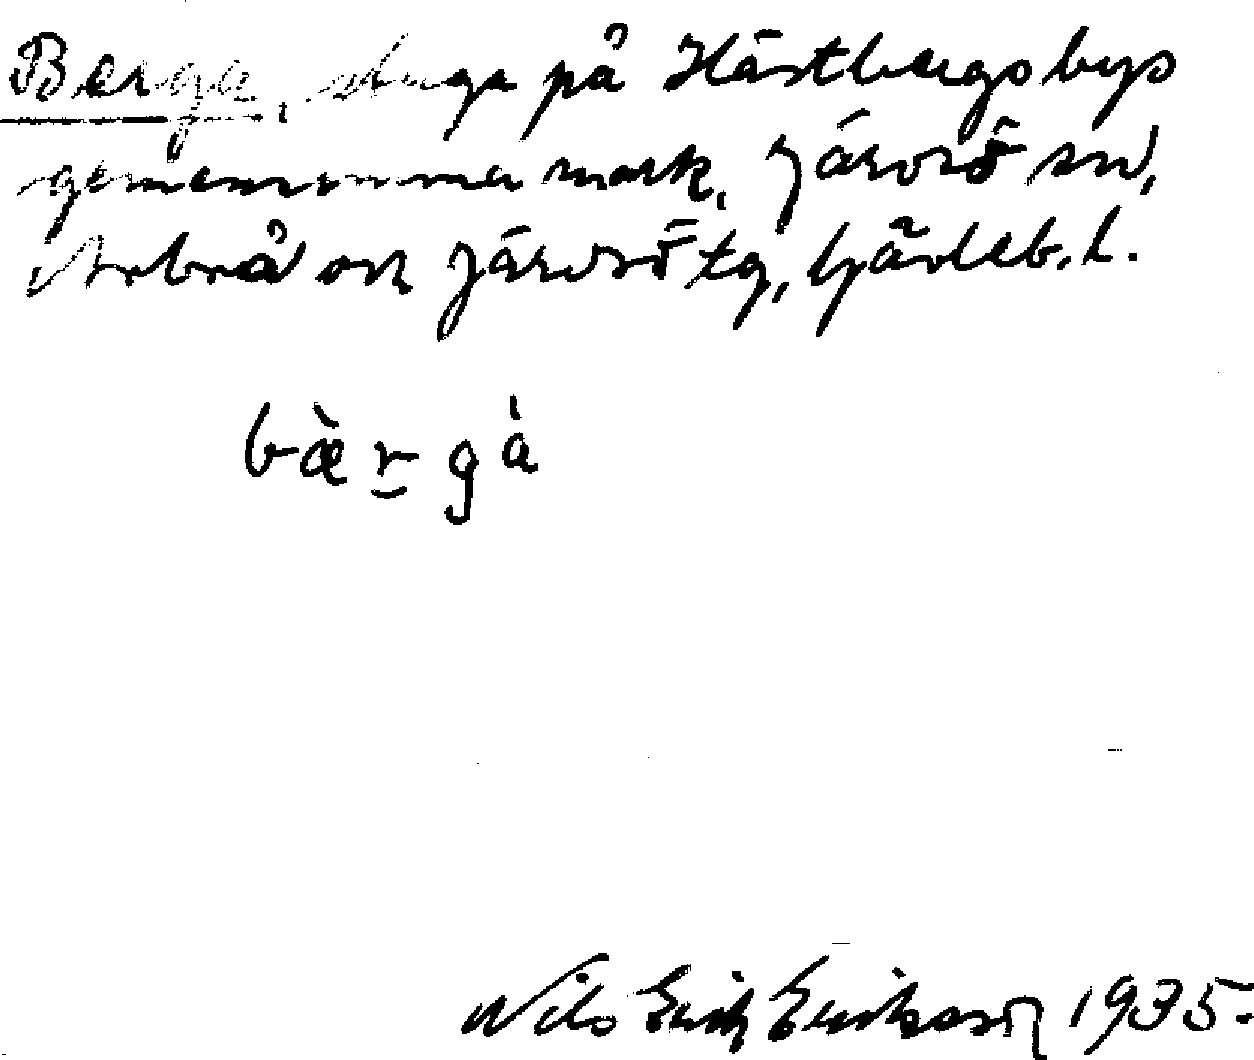 Berga, stuga på Hästbergs bys
gemensamma mark, Järvsö sn,
Arbrå och Järvsö tg, Gävleb. l.
bæ̀rgà
Nils Erik Eriksson 1935.